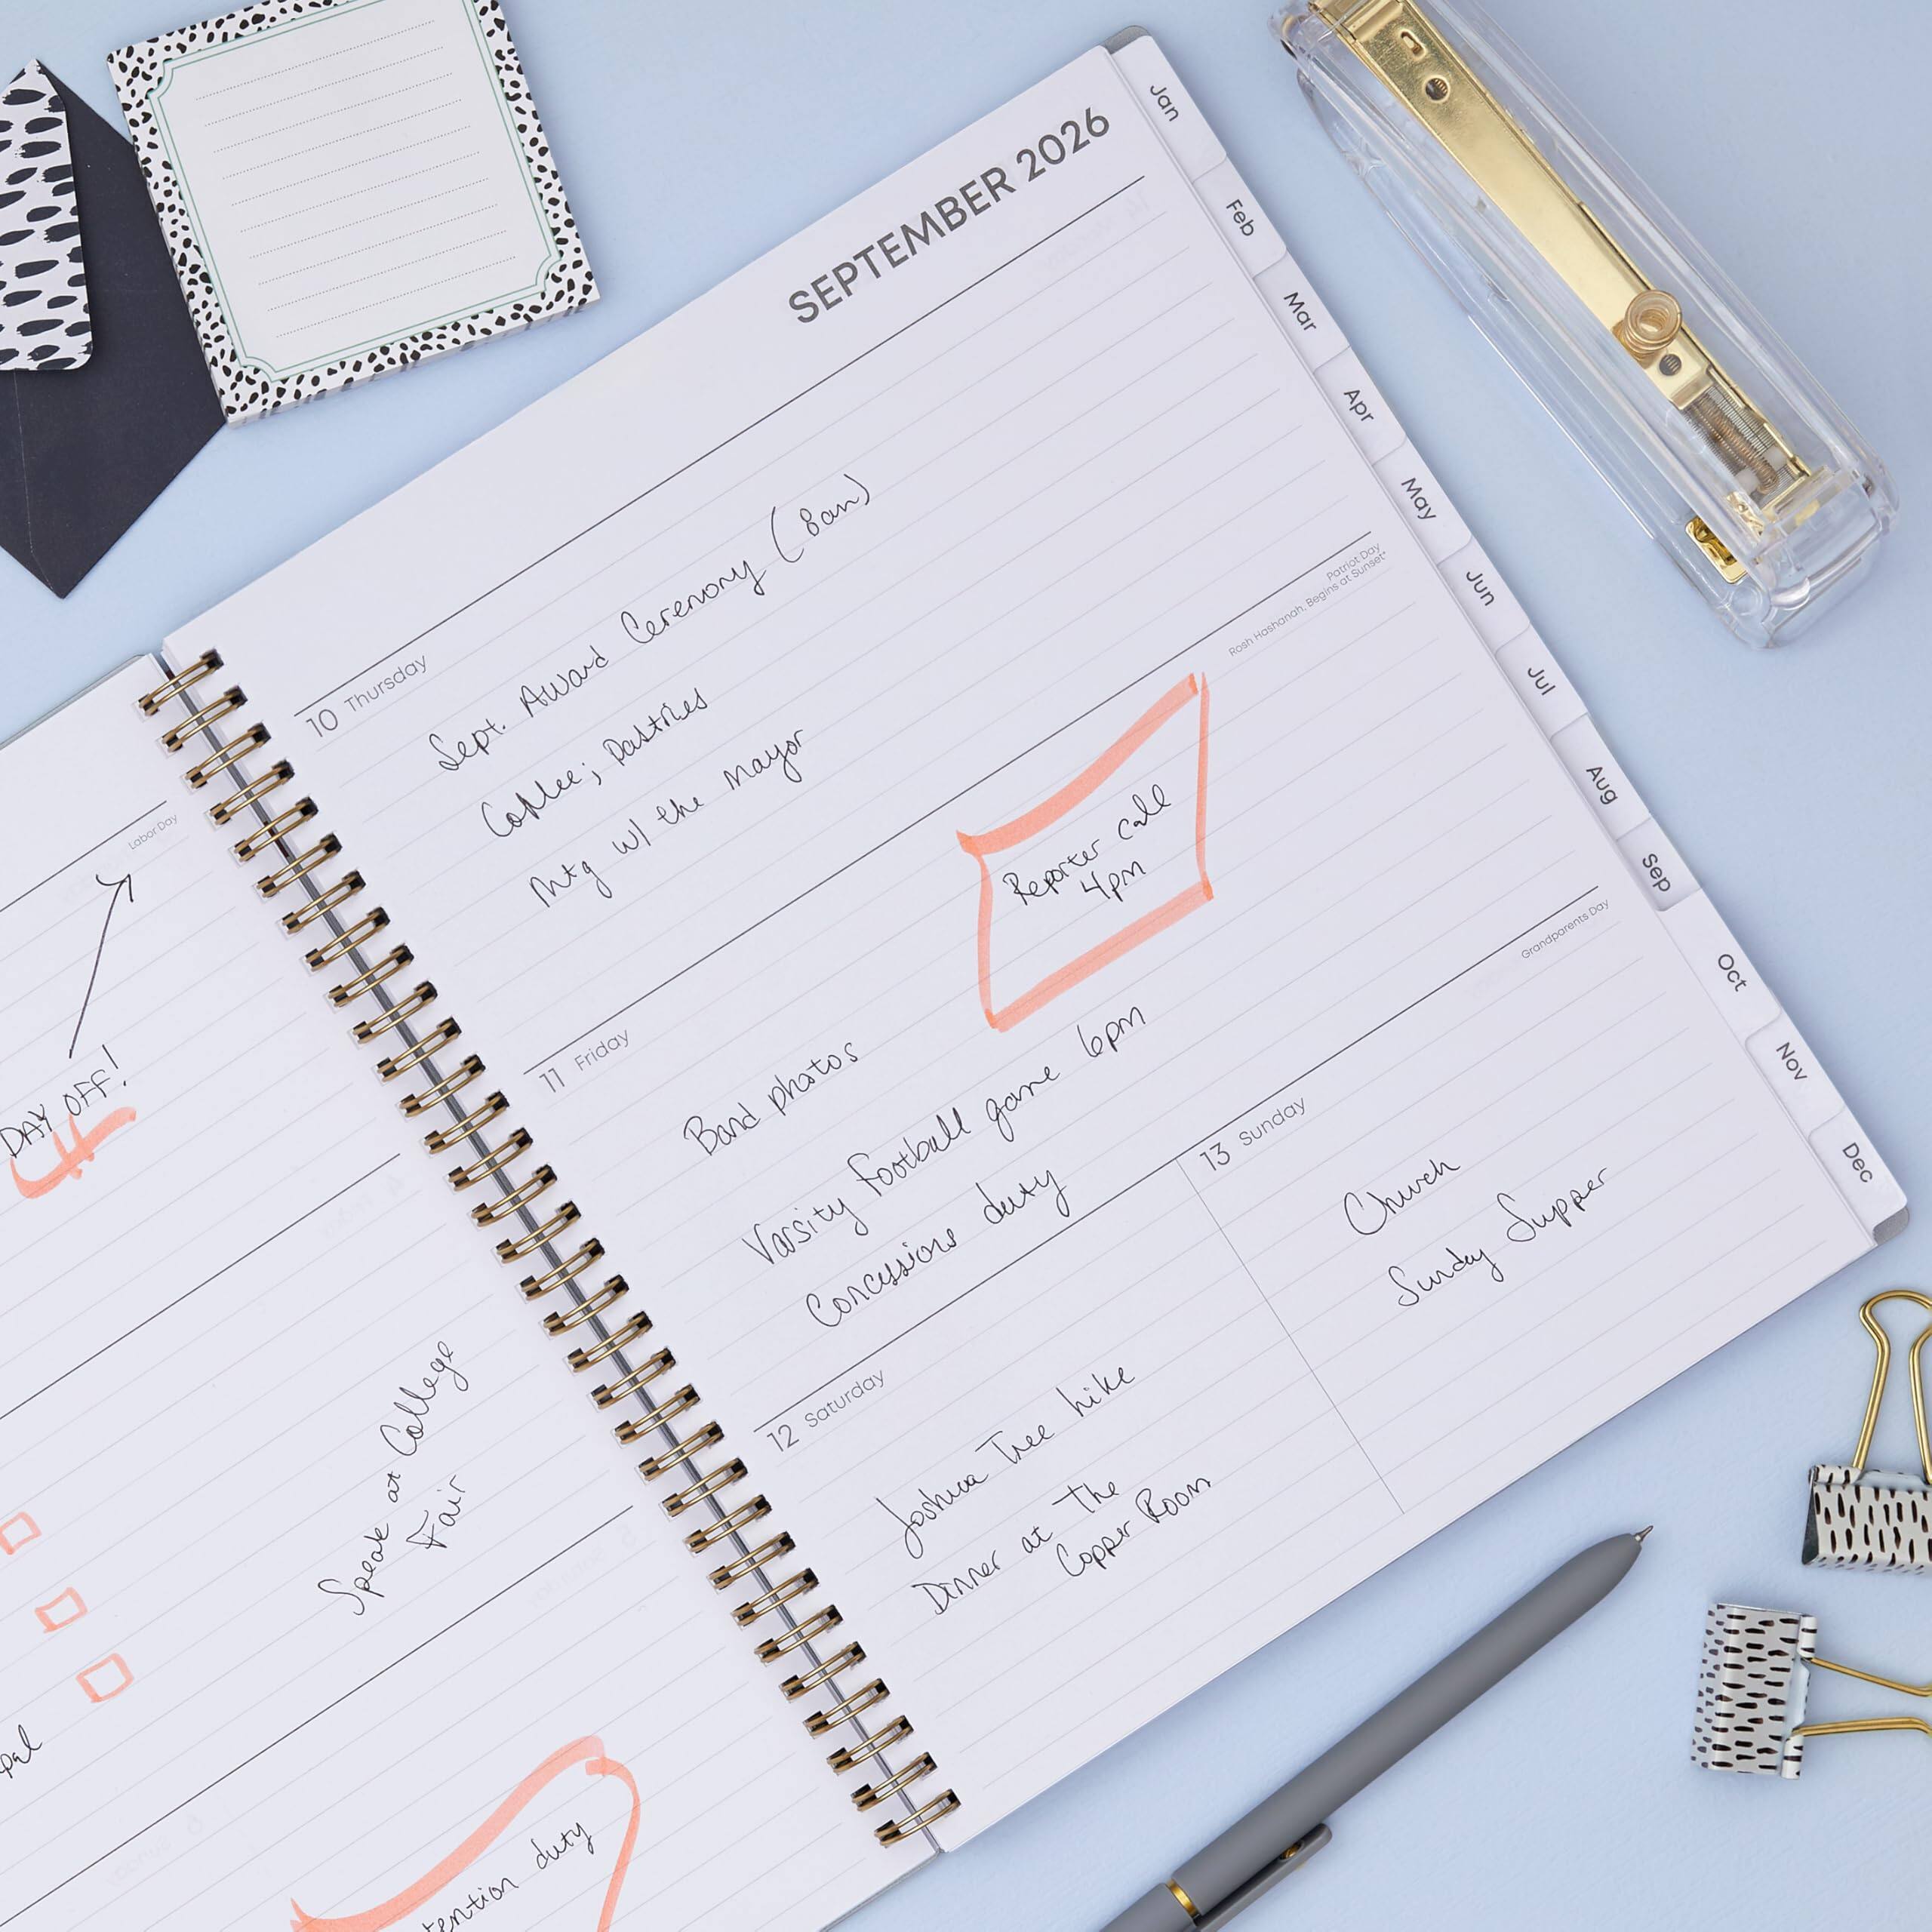 Labor Day
DAY OFF!
Speak at College
Fair
duty
SEPTEMBER 2026
10 Thursday
Sept. Award Ceremony (8am)
Coffee; pastries
Mtg w/ the mayor
Patriot Day
Rosh Hashanah, Begins at Sunset*
11 Friday
Reporter call
4pm
Band photos
Varsity Football game 6pm
Concessions duty
12 Saturday
Joshua Tree hike
Dinner at The
Copper Room
Grandparents Day
13 Sunday
Church
Sunday Supper
Jan
Feb
Mar
Apr
May
Jun
Jul
Aug
Sep
Oct
Nov
Dec